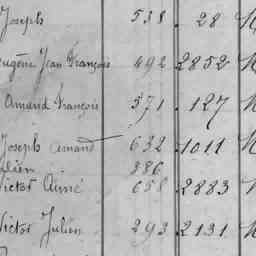 Joseph 538 . 28 N
Eugène Jean François 692 2852 N
Amand François 571 . 127 N
Joseph Amand 632 1011 N
Julien 386
Victor Aimé 658 2883 N
Victor Julien 293 2131 N